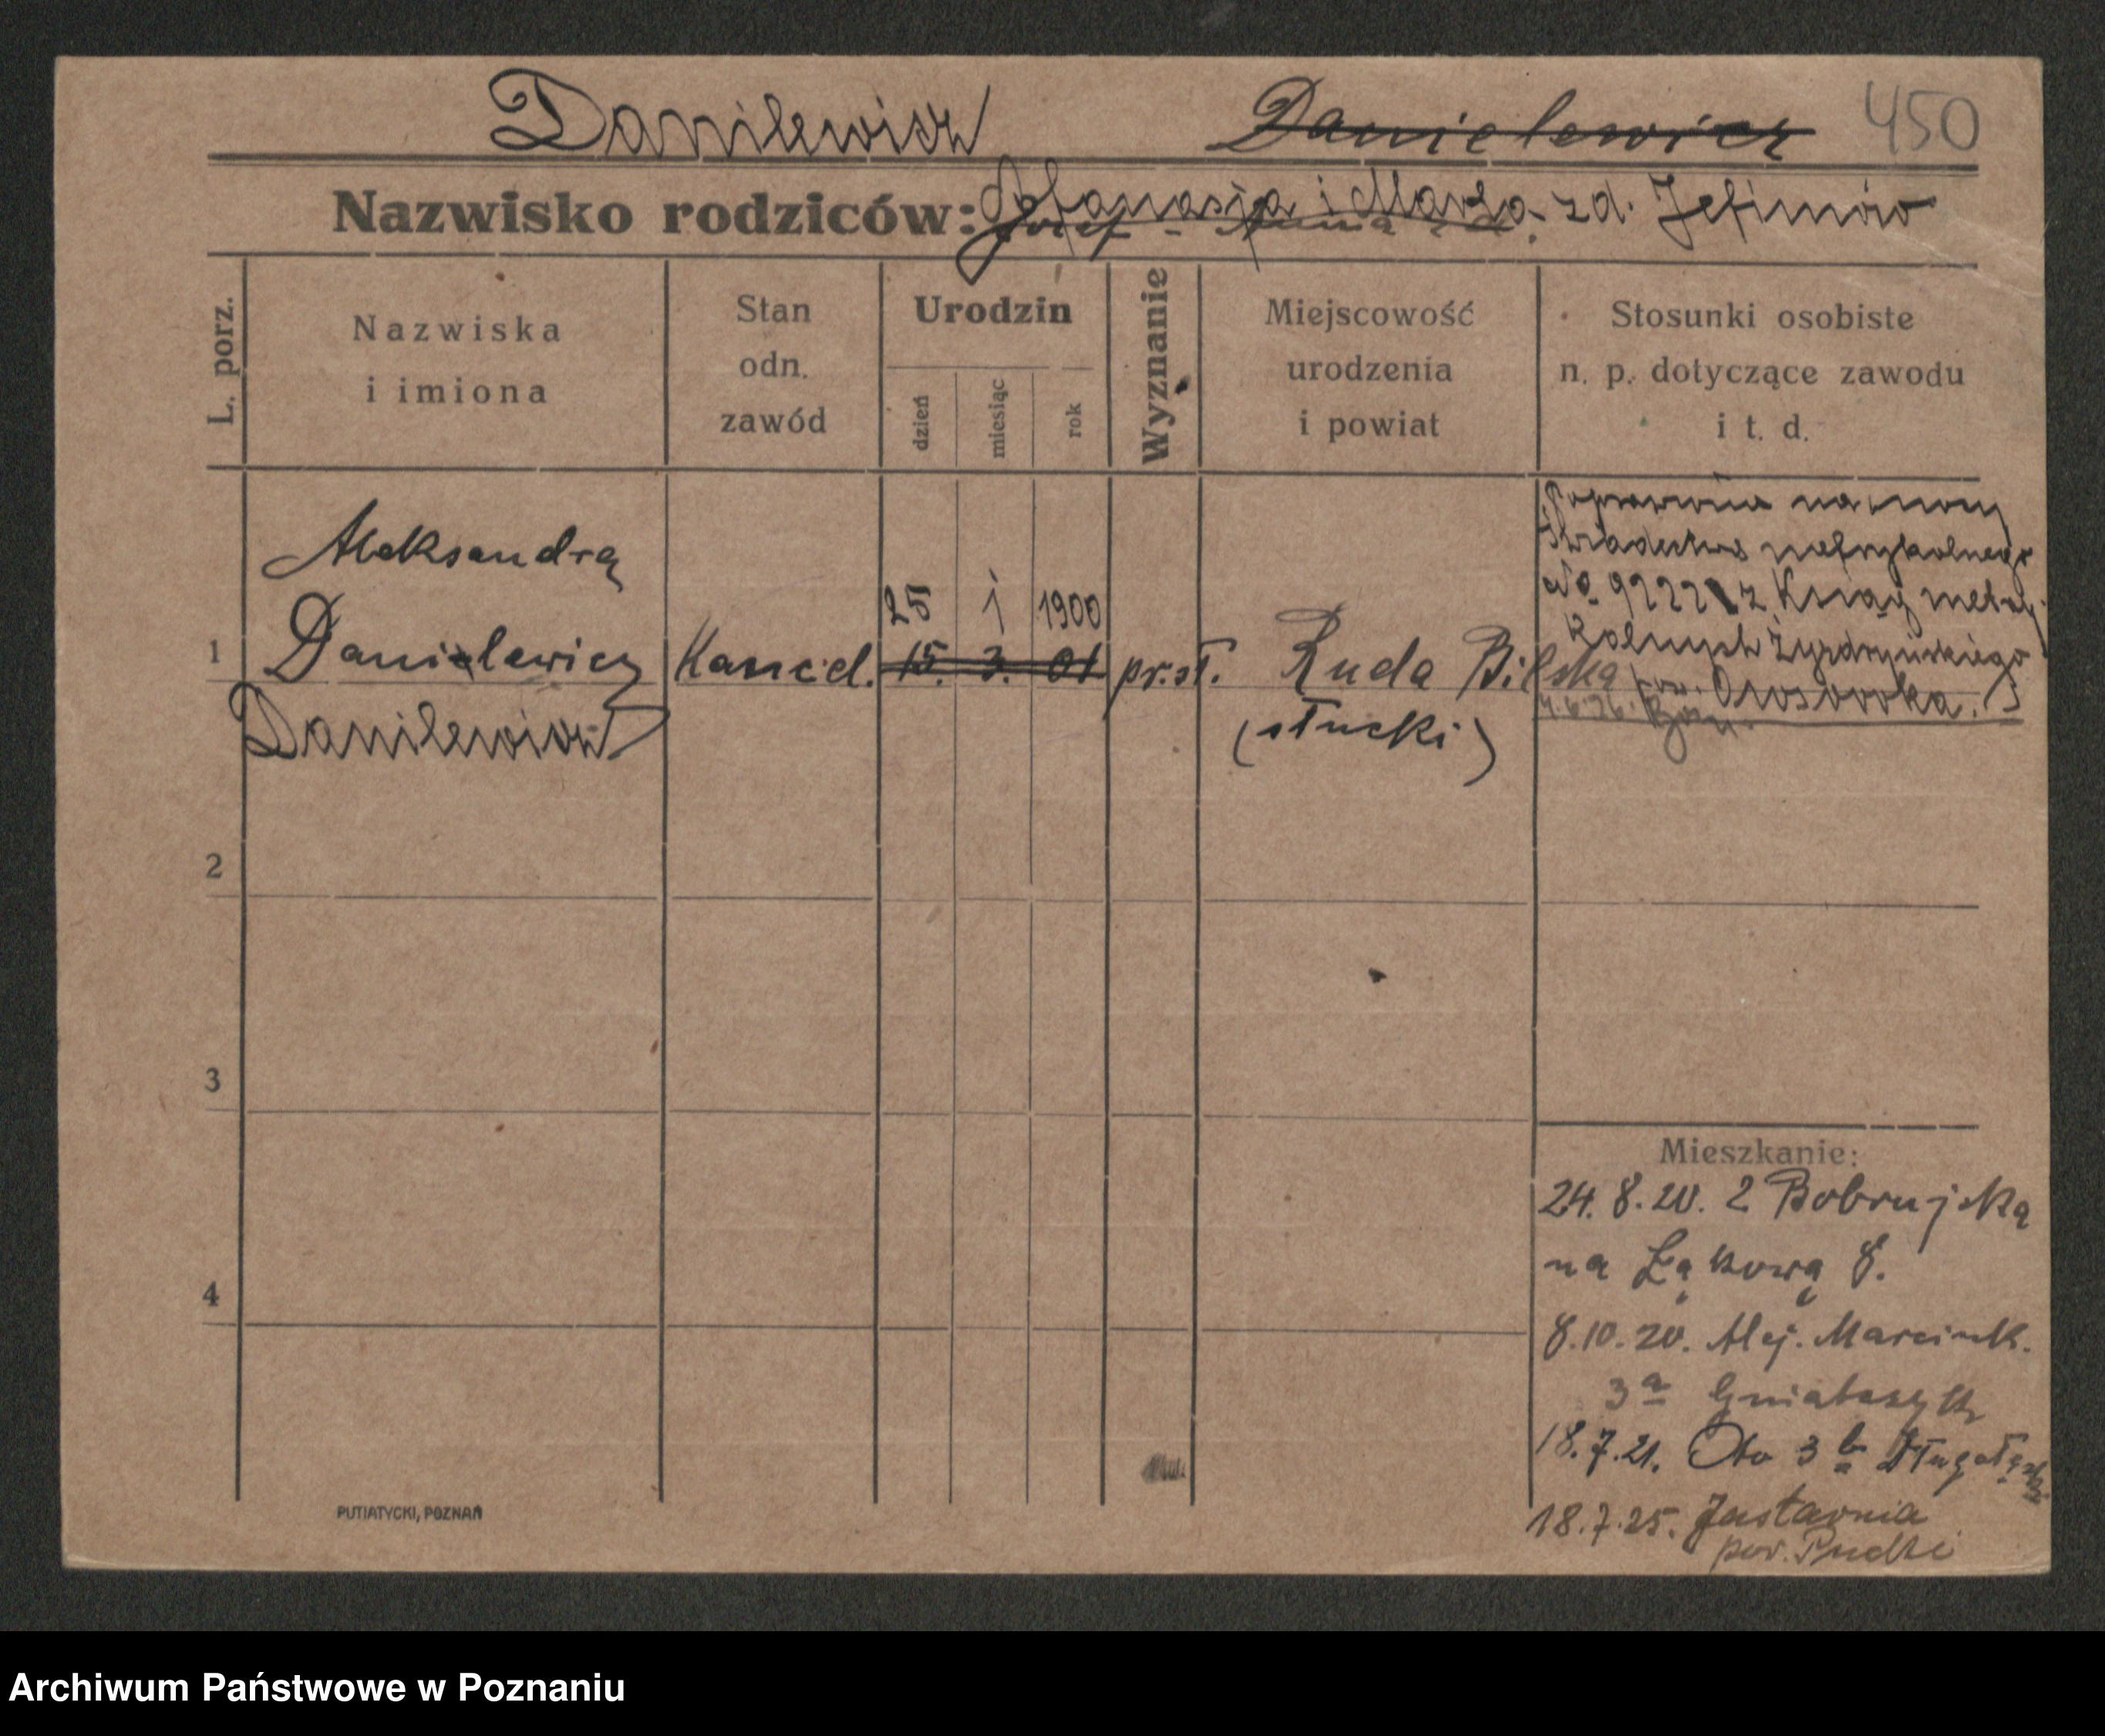 Danilewicz Danielewicz 450
Nazwisko rodziców: Afanasja i Marja zd. Jefimów
L. porz.
Nazwiska
i imiona
Stan
odn.
zawód
Urodzin
dzień
miesiąc
rok
Wyznanie
Miejscowość
urodzenia
i powiat
Stosunki osobiste
n. p. dotyczące zawodu
i t. d.
Aleksandra
25 1 1900
1 Danielewicz Kancel. 15. 3. 01 pr.sł. Ruda Bilska
Danilewicz (słucki)
na mocy
Świadectwa
No 9222 z Ksiąg metry-
kalnych
pow. Ososowka.
4.6.26.
2
3
4
Mieszkanie:
24. 8. 20. z Bobrujska
na Łąkową 8.
8.10.20. Alej. Marcink.
3a Gniatczyk
18.7.21. Oto 3b
18.7.25. Jastarnia
pow. Pucki
PUTIATYCKI, POZNAŃ
Archiwum Państwowe w Poznaniu